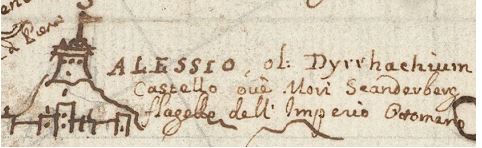 ALESSIO, ol: Dyrrhachium
Castello ovè Morì Scanderberg
flagello dell' Imperio Ottomano